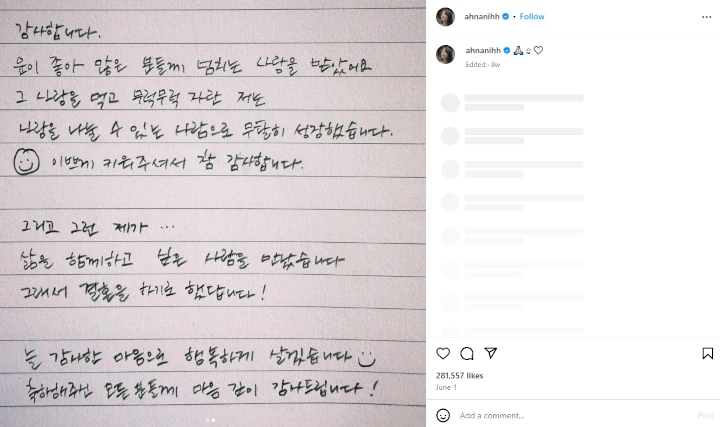 감사합니다.
운이 좋아 많은 분들께 넘치는 사랑을 받았어요
그 사랑을 먹고 무럭무럭 자란 저는
사랑을 나눌 수 있는 사람으로 무탈히 성장했습니다.
이쁘게 키워주셔서 참 감사합니다.
그리고 그런 제가 ...
삶을 함께하고 싶은 사람을 만났습니다
그래서 결혼을 하기로 했답니다!
늘 감사한 마음으로 행복하게 살겠습니다
축하해주신 모든 분들께 마음 깊이 감사드립니다!
ahnanihh • Follow
ahnanihh 🙏🏻☺️🤍
Edited · 8w
281,557 likes
June 1
Add a comment...
Post